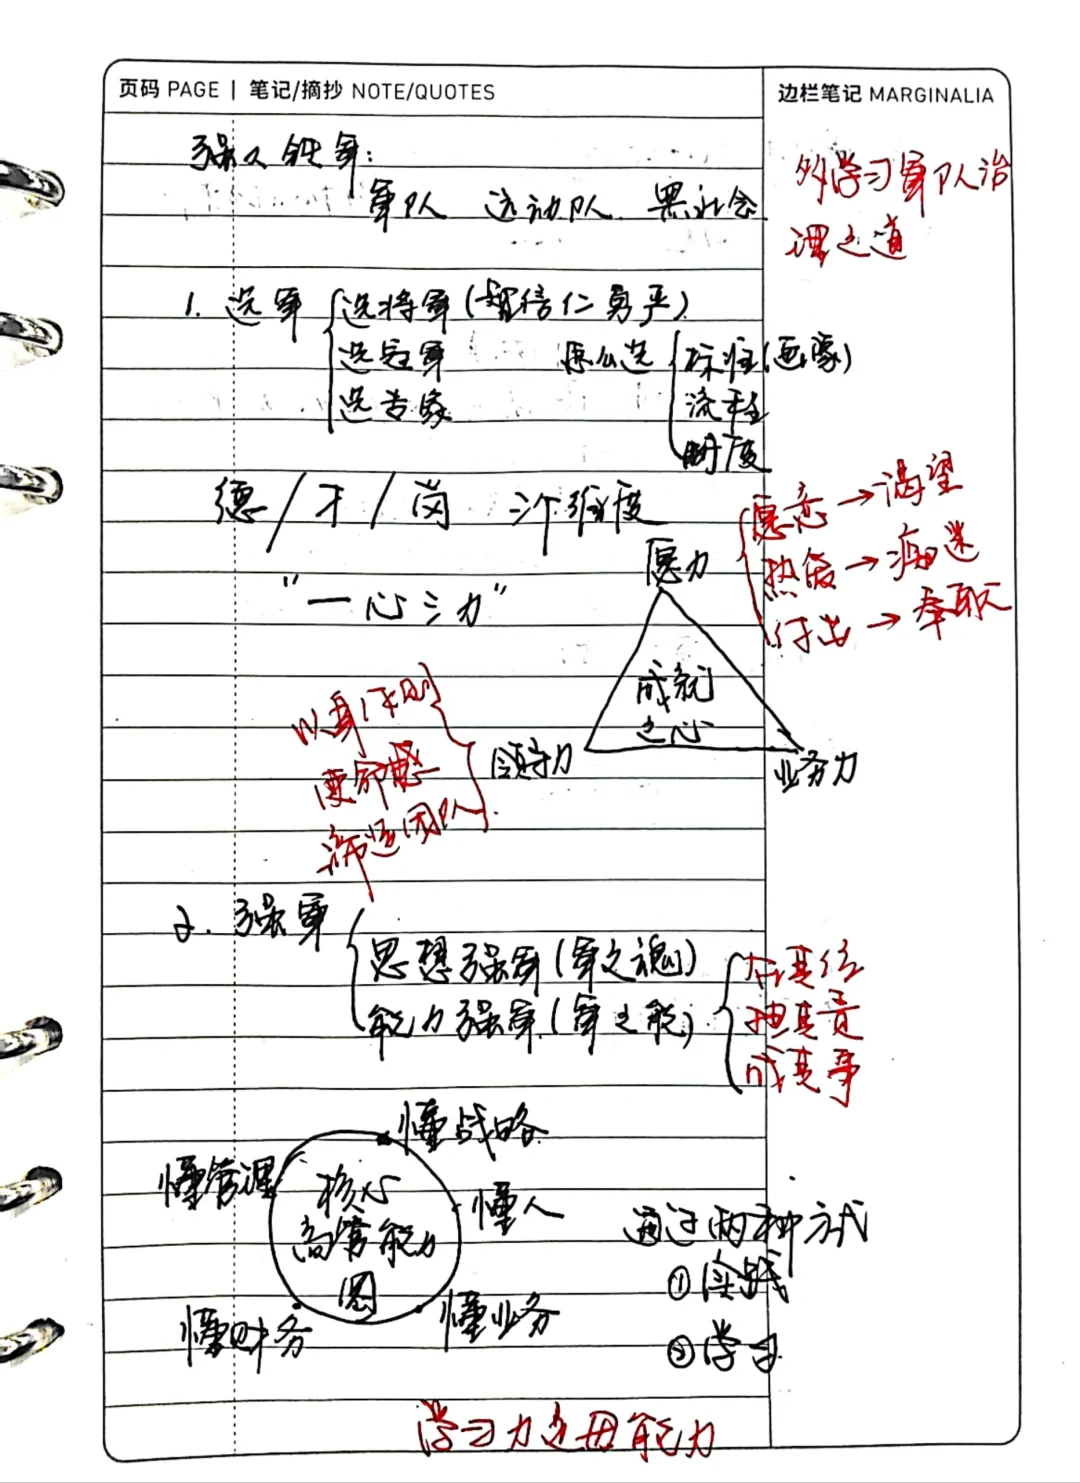 页码 PAGE | 笔记/摘抄 NOTE/QUOTES
边栏笔记 MARGINALIA
强人铁军：
军队 运动队 黑社会
多学习军队治
理之道
1. 选军
选将军（智信仁勇严）
选冠军
选专家
怎么选
标准（画像）
流程
制度
德/才/岗 三个维度
"一心三力"
愿力
愿意→渴望
热爱→痴迷
付出→奉献
成就
之心
领导力
业务力
以身作则
使命感
缔造团队
2. 强军
思想强军（军之魂）
能力强军（军之能）
在其位
担其责
成其事
懂战略
懂管理
懂人
懂财务
懂业务
核心
高管能力
图
通过两种方式
①实践
②学习
学习力是母能力